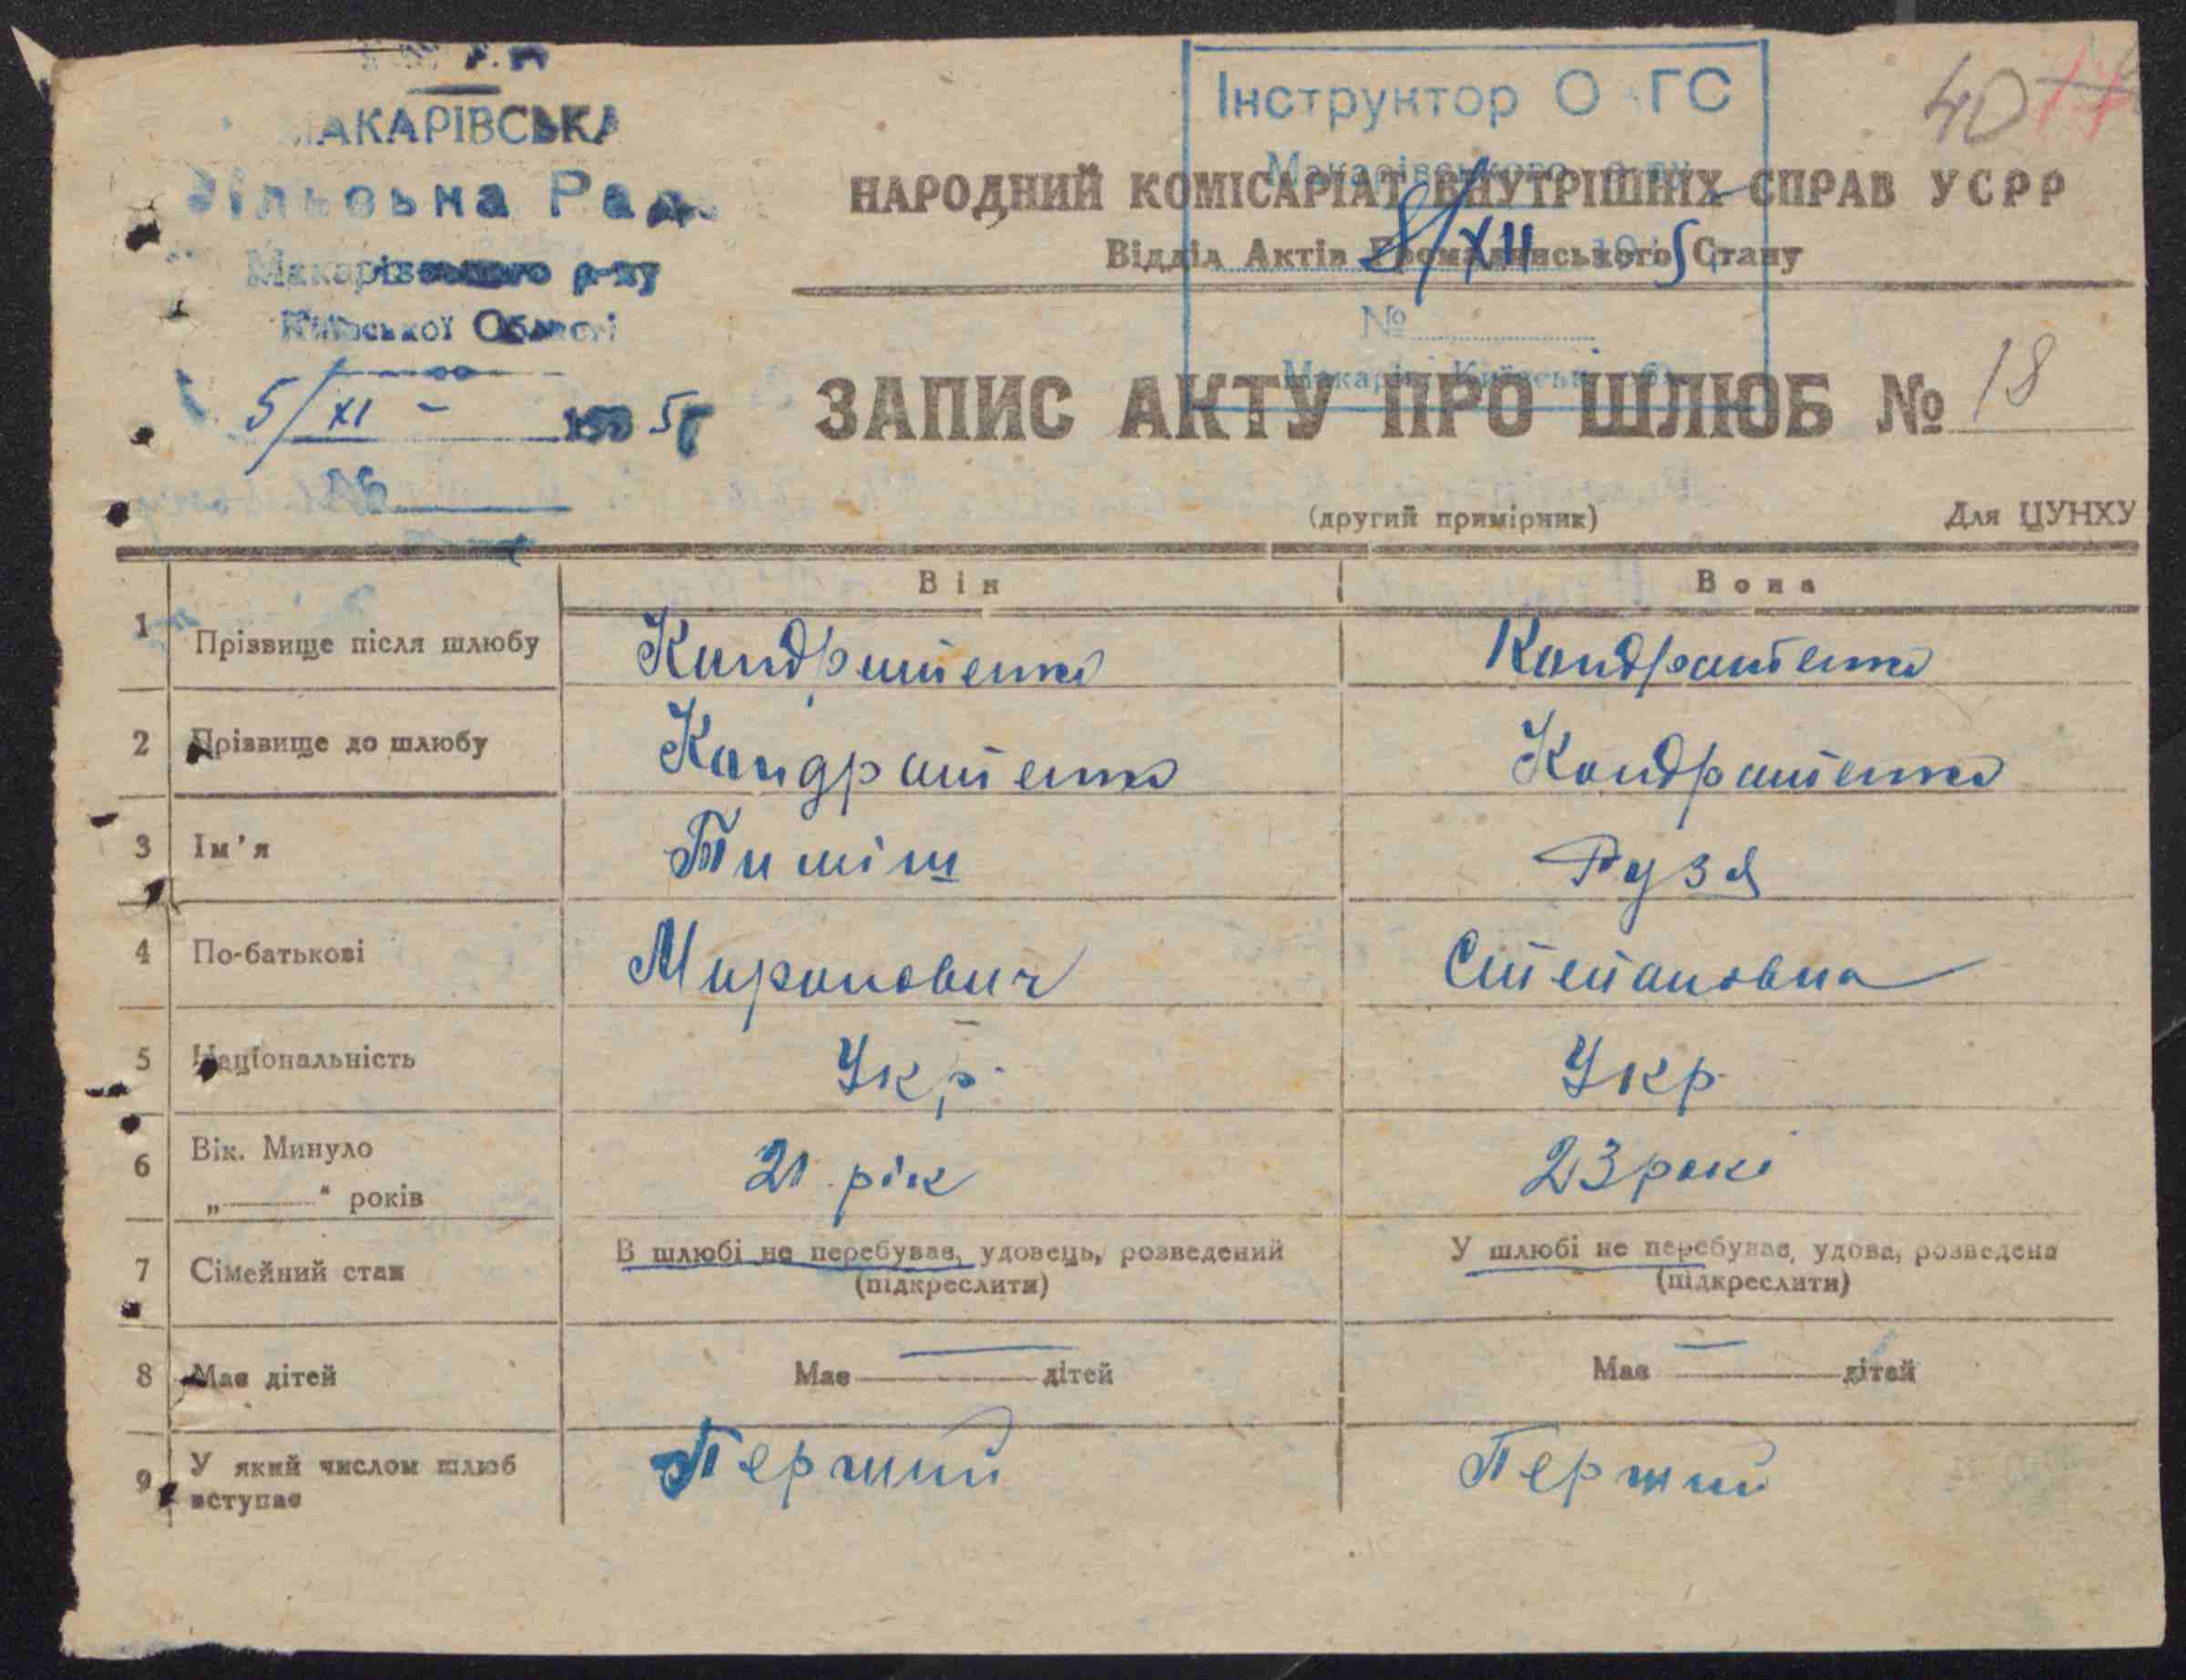 МАКАРІВСЬКА
Сільська Рада
Макарівського р-ну
Київської Області
5/XI - 1935
№
Інструктор ОАГС
Макарівського р-ну
8/XII 1935
№
40
НАРОДНИЙ КОМІСАРІАТ ВНУТРІШНІХ СПРАВ УСРР
Відділ Актів Громадянського Стану
ЗАПИС АКТУ ПРО ШЛЮБ № 18
(другий примірник) Для ЦУНХУ
Він Вона
1 Прізвище після шлюбу Кондратенко Кондратенко
2 Прізвище до шлюбу Кондратенко Кондратенко
3 Ім'я Тиміш Рузя
4 По-батькові Миронович Степановна
5 Національність Укр. Укр.
6 Вік. Минуло 21 рік 23 рокі
„ “ років
7 Сімейний стан В шлюбі не перебував, удовець, розведений У шлюбі не перебував, удова, розведена
(підкреслити) (підкреслити)
8 Має дітей Має — дітей Має — дітей
9 У який числом шлюб вступає Перший Перший